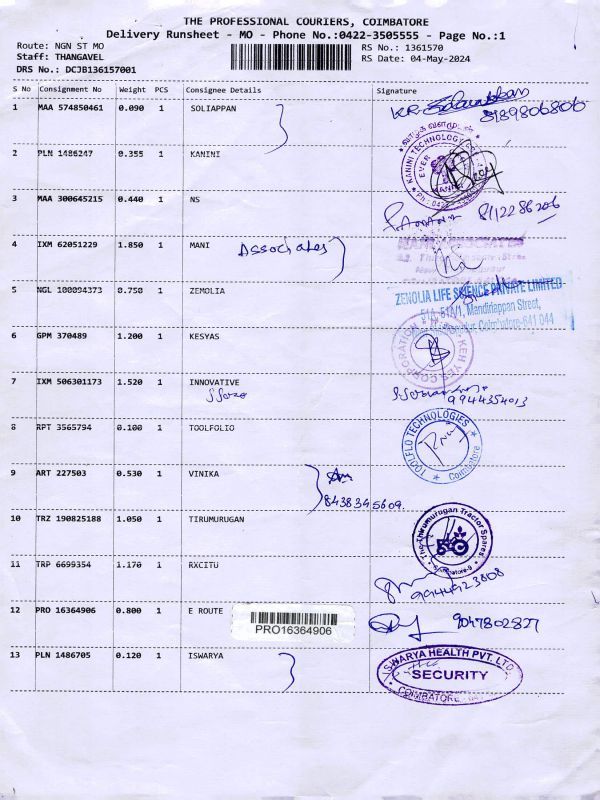 THE PROFESSIONAL COURIERS, COIMBATORE
Delivery Runsheet - MO - Phone No.:0422-3505555 - Page No.:1
Route: NGN ST MO
RS No.: 1361570
Staff: THANGAVEL
RS Date: 04-May-2024
DRS No.: DCJB136157001
S No Consignment No Weight PCS Consignee Details Signature
1 MAA 574850461 0.090 1 SOLIAPPAN
8189806806
2 PLN 1486247 0.355 1 KANINI
KANINI TECHNOLOGY
3 MAA 300645215 0.440 1 NS
8112286206
4 IXM 62051229 1.850 1 MANI Associates
5 NGL 100094373 0.750 1 ZEMOLIA
ZENOLIA LIFE SCIENCE PRIVATE LIMITED
51A, 51A/1, Mandiriappan Street,
Coimbatore-641 044
6 GPM 370489 1.200 1 KESYAS
KEH YES CORPORATION
7 IXM 506301173 1.520 1 INNOVATIVE
9944354013
8 RPT 3565794 0.100 1 TOOLFOLIO
TOOLFLO TECHNOLOGIES
Coimbatore
9 ART 227503 0.530 1 VINIKA
8438345609
10 TRZ 190825188 1.050 1 TIRUMURUGAN
The Thirumurugan Tractor Spares
Coimbatore-9
11 TRP 6699354 1.170 1 RXCITU
9944923808
12 PRO 16364906 0.800 1 E ROUTE
PRO16364906
9047802827
13 PLN 1486705 0.120 1 ISWARYA
ISWARYA HEALTH PVT. LTD.
SECURITY
COIMBATORE